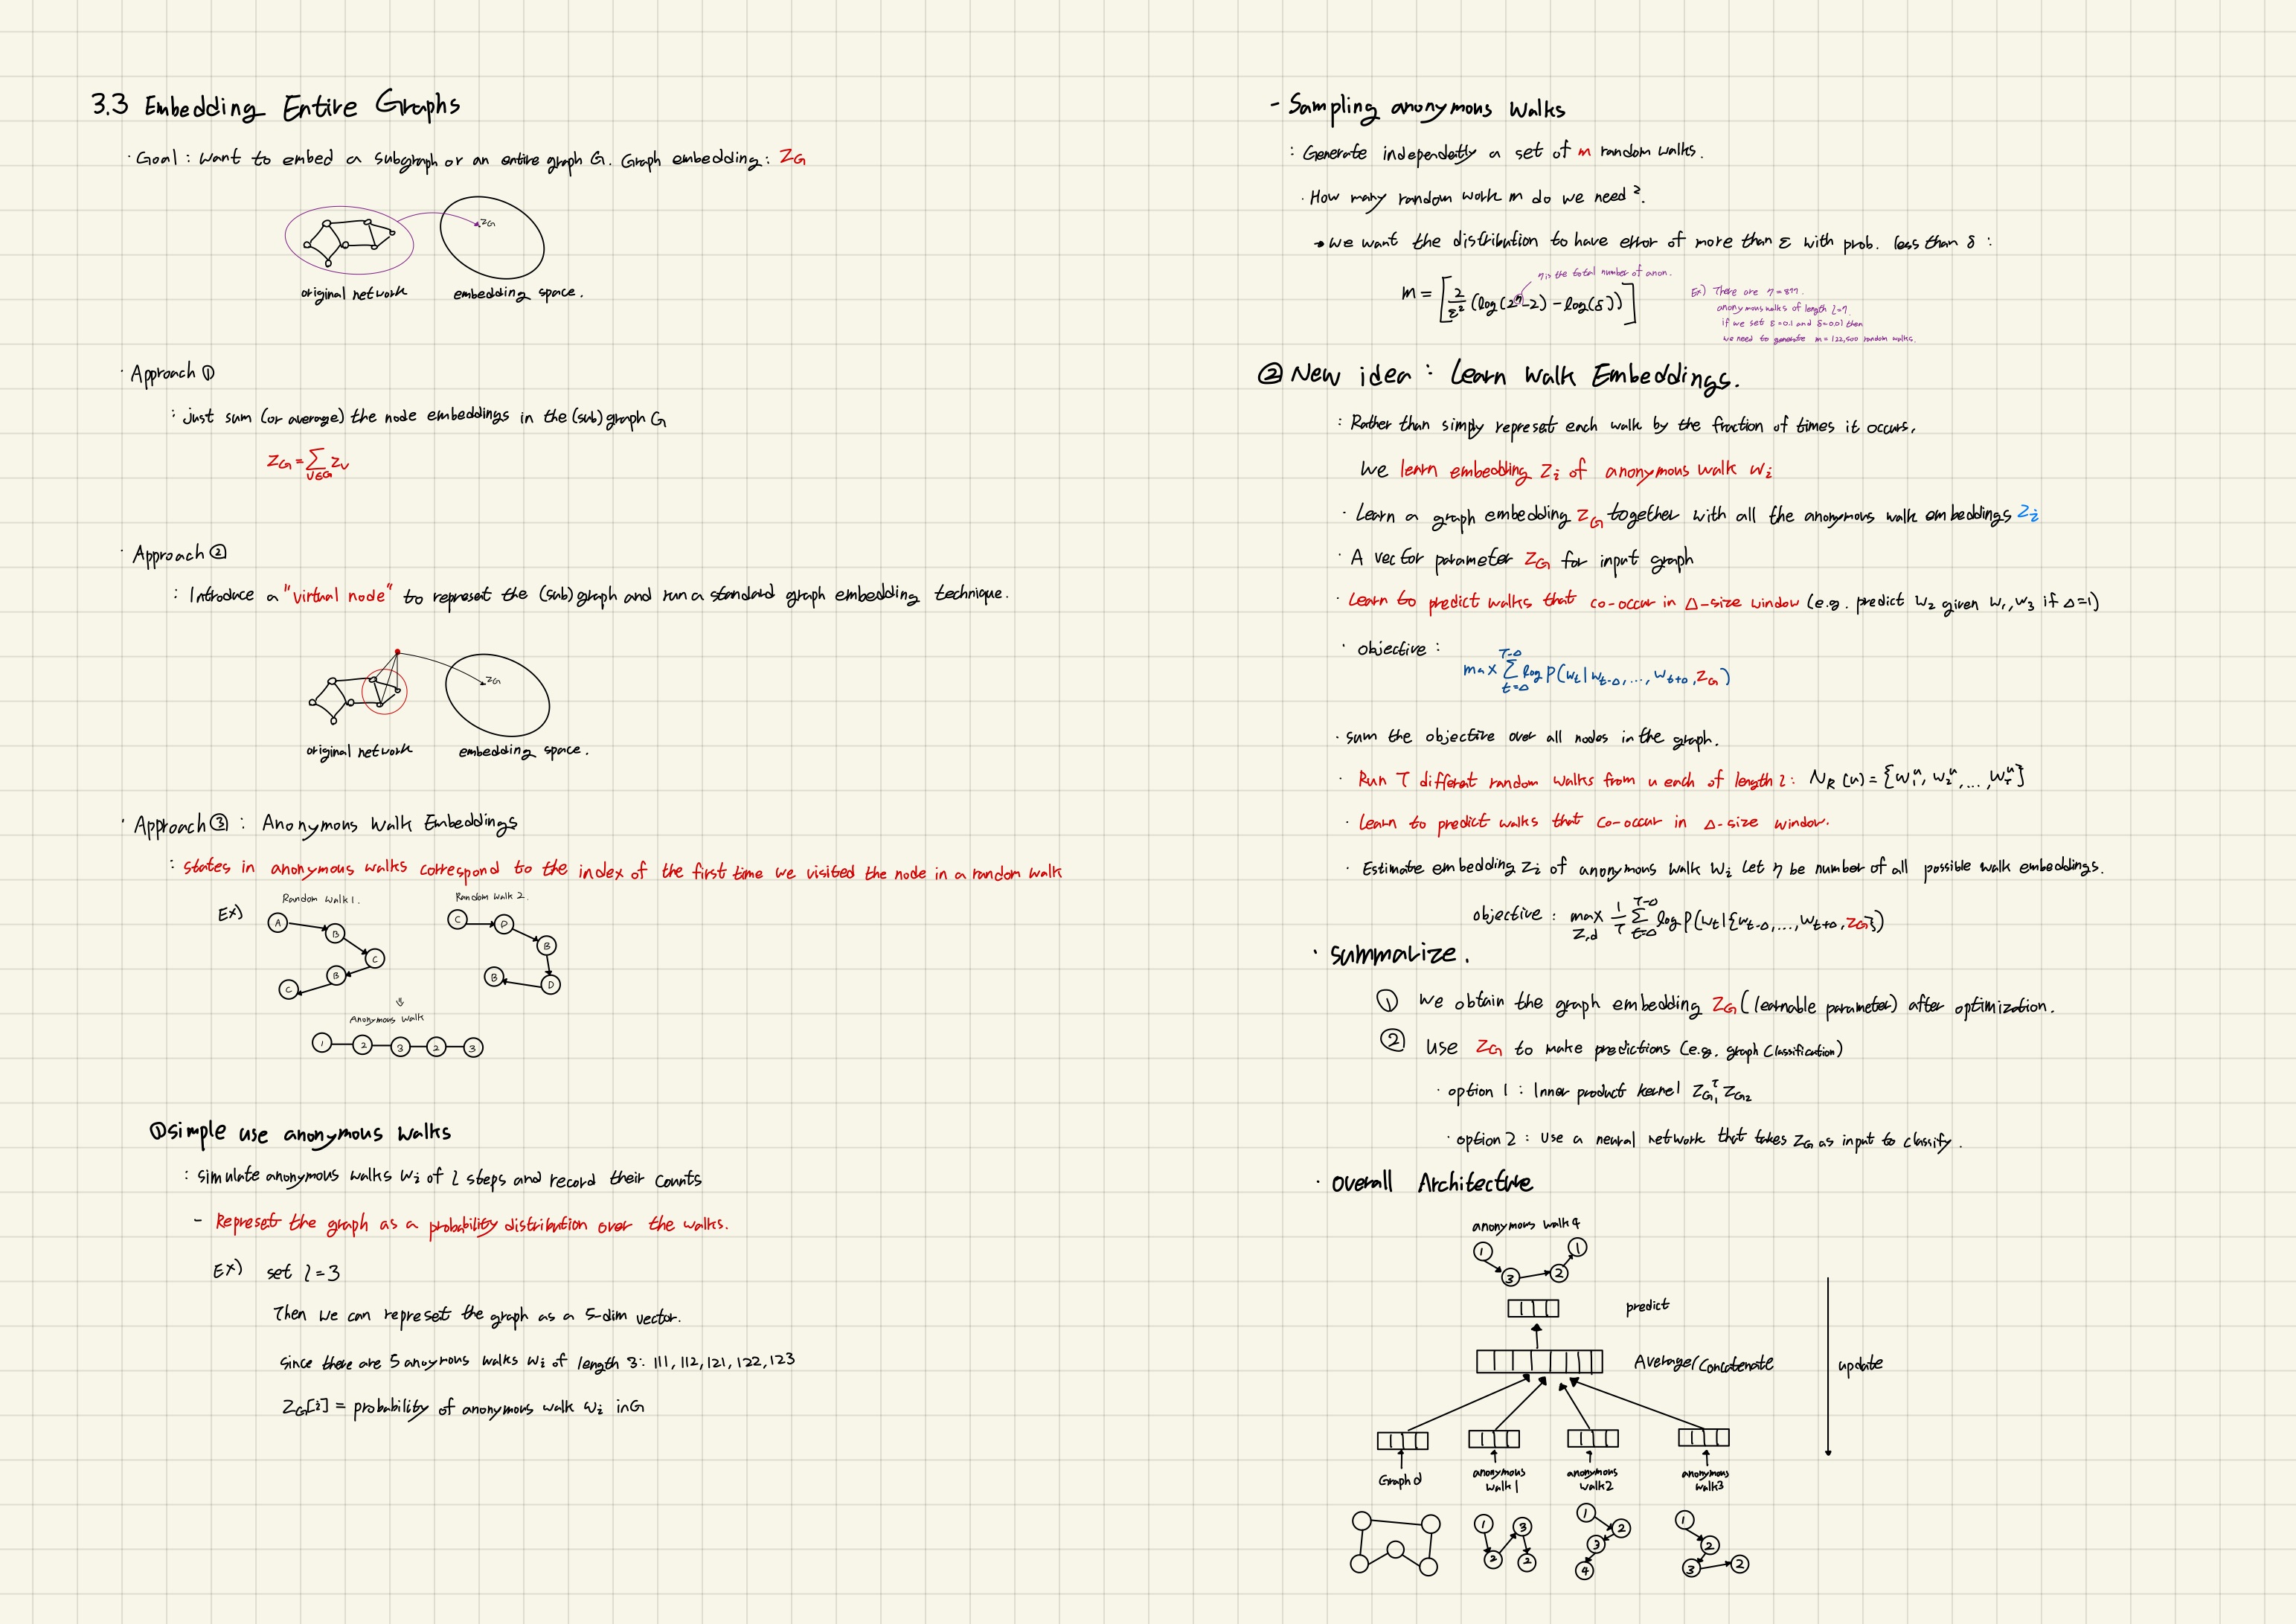 3.3 Embedding Entire Graphs
· Goal : want to embed a subgraph or an entire graph G. Graph embedding : Z_G
Z_G
original network
embedding space.
· Approach ①
: just sum (or average) the node embeddings in the (sub)graph G
Z_G = Σ_{v∈G} Z_v
· Approach ②
: Introduce a "virtual node" to represet the (sub)graph and run a standard graph embedding technique.
Z_G
original network
embedding space.
· Approach ③ : Anonymous Walk Embeddings
: states in anonymous walks correspond to the index of the first time we visited the node in a random walk
Ex)
Random Walk 1.
A B C B C
Random Walk 2.
C D B D B
⇓
Anonymous Walk
1 2 3 2 3
① simple use anonymous walks
: simulate anonymous walks w_i of l steps and record their counts
- Represet the graph as a probability distribution over the walks.
Ex) set l=3
Then we can represet the graph as a 5-dim vector.
since there are 5 anoymous walks w_i of length 3: 111, 112, 121, 122, 123
Z_G[i] = probability of anonymous walk w_i in G
- Sampling anonymous walks
: Generate independently a set of m random walks.
· How many random work m do we need ?.
→ we want the distribution to have error of more than ε with prob. less than δ :
η is the total number of anon.
m = [2/ε² (log(2^η-2) - log(δ))]
Ex) There are η=877.
anonymous walks of length l=7.
if we set ε=0.1 and δ=0.01 then
we need to generate m=122,500 random walks.
② New idea : Learn Walk Embeddings.
: Rather than simply represet each walk by the fraction of times it occurs,
we learn embedding Z_i of anonymous walk w_i
· Learn a graph embedding Z_G together with all the anonymous walk embeddings Z_i
· A vector parameter Z_G for input graph
· Learn to predict walks that co-occur in Δ-size window (e.g. predict w_2 given w_1, w_3 if Δ=1)
· objective :
max Σ_{t=Δ}^{T-Δ} log P(w_t | w_{t-Δ}, ..., w_{t+Δ}, Z_G)
· sum the objective over all nodes in the graph.
· Run T different random walks from u each of length l : N_R(u) = {w_1^u, w_2^u, ..., w_T^u}
· Learn to predict walks that co-occur in Δ-size window.
· Estimate embedding Z_i of anonymous walk w_i Let η be number of all possible walk embeddings.
objective : max_{Z,d} 1/T Σ_{t=Δ}^{T-Δ} log P(w_t | {w_{t-Δ}, ..., w_{t+Δ}, Z_G})
· summarize.
① we obtain the graph embedding Z_G (learnable parameter) after optimization.
② use Z_G to make predictions (e.g. graph classification)
· option 1 : Inner product kernel Z_{G1}^T Z_{G2}
· option 2 : use a neural network that takes Z_G as input to classify.
· overall Architecture
anonymous walk 4
1 3 2 1
predict
Average/Concatenate
update
Graph d
anonymous walk 1
anonymous walk2
anonymous walk3
1 2 3 2
1 2 3 4
1 2 3 2